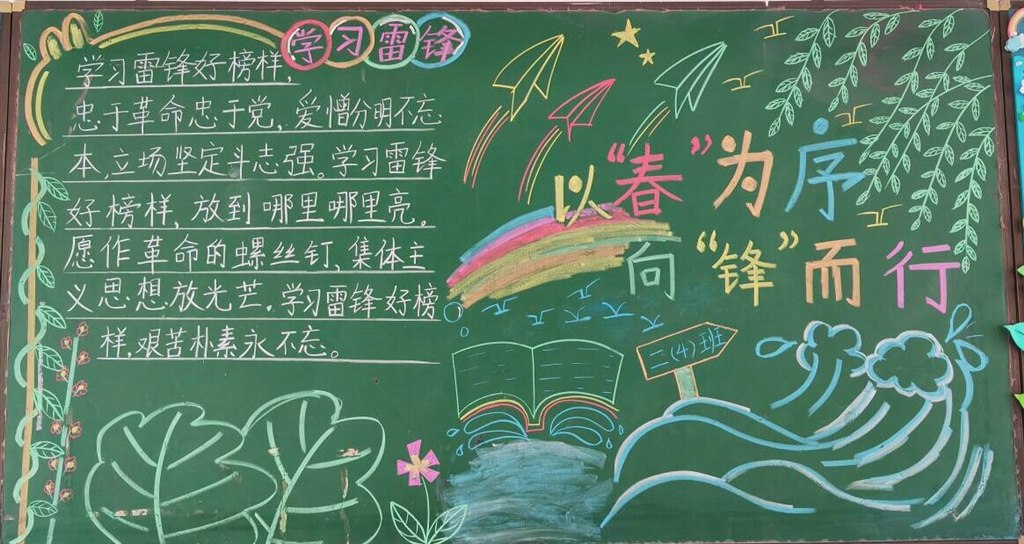 学习雷锋
学习雷锋好榜样,
忠于革命忠于党,爱憎分明不忘
本,立场坚定斗志强。学习雷锋
好榜样,放到哪里哪里亮。
愿作革命的螺丝钉,集体主
义思想放光芒。学习雷锋好榜
样,艰苦朴素永不忘。
以“春”为序
向“锋”而行
二(4)班